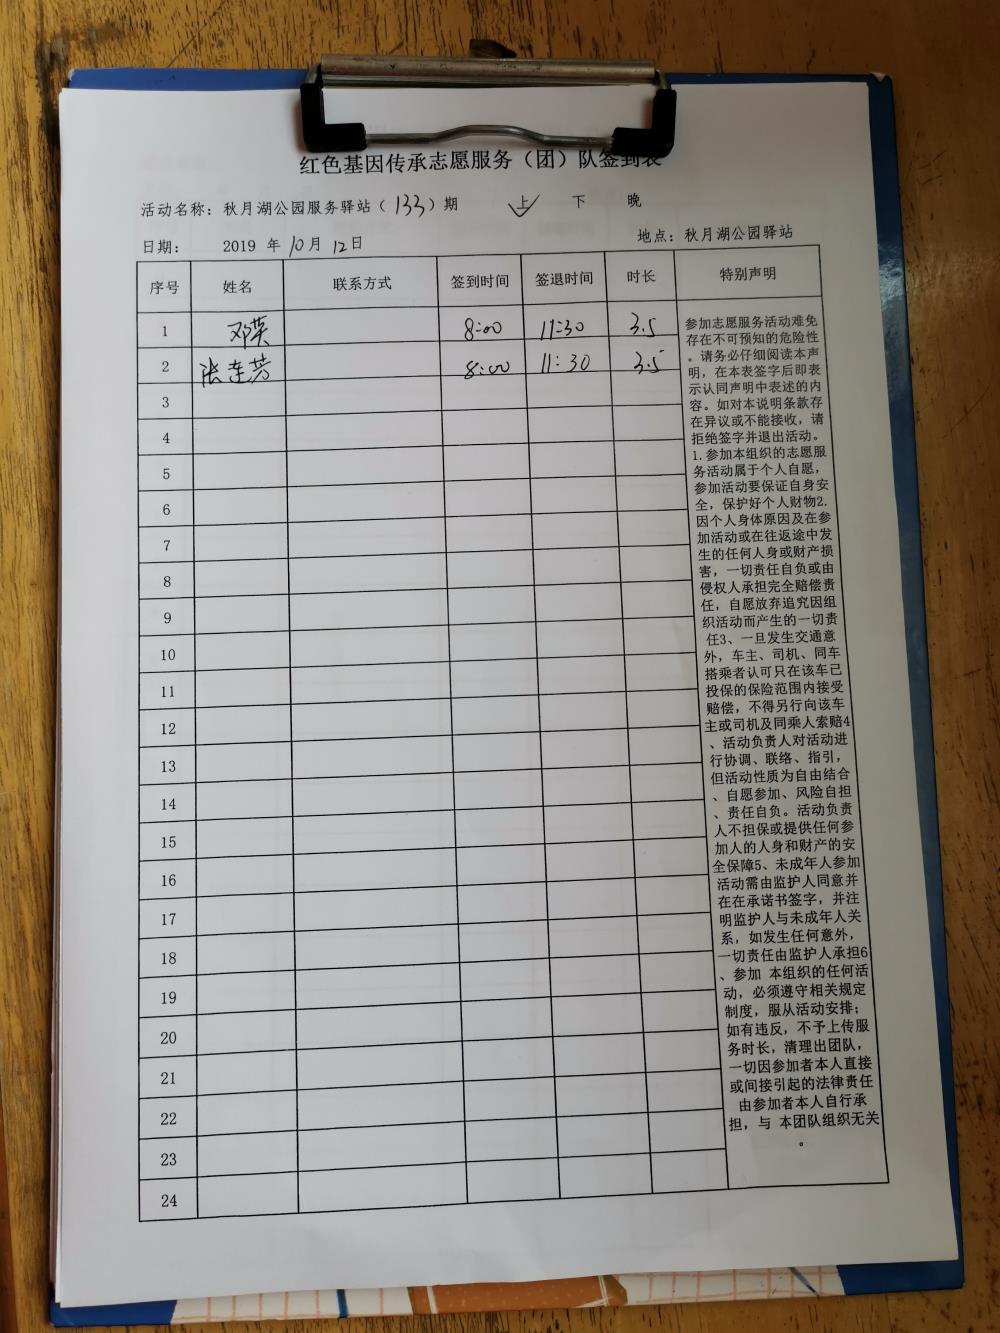 红色基因传承志愿服务（团）队签到表
活动名称：秋月湖公园服务驿站（133）期 上 下 晚
日期： 2019 年 10 月 12 日 地点：秋月湖公园驿站
序号 姓名 联系方式 签到时间 签退时间 时长 特别声明
1 邓英 8:00 11:30 3.5
2 张连芳 8:00 11:30 3.5
3
4
5
6
7
8
9
10
11
12
13
14
15
16
17
18
19
20
21
22
23
24
参加志愿服务活动难免
存在不可预知的危险性
。请务必仔细阅读本声
明，在本表签字后即表
示认同声明中表述的内
容。如对本说明条款存
在异议或不能接收，请
拒绝签字并退出活动。
1.参加本组织的志愿服
务活动属于个人自愿，
参加活动要保证自身安
全，保护好个人财物2.
因个人身体原因及在参
加活动或在往返途中发
生的任何人身或财产损
害，一切责任自负或由
侵权人承担完全赔偿责
任，自愿放弃追究因组
织活动而产生的一切责
任3、一旦发生交通意
外，车主、司机、同车
搭乘者认可只在该车已
投保的保险范围内接受
赔偿，不得另行向该车
主或司机及同乘人索赔4
、活动负责人对活动进
行协调、联络、指引，
但活动性质为自由结合
、自愿参加、风险自担
、责任自负。活动负责
人不担保或提供任何参
加人的人身和财产的安
全保障5、未成年人参加
活动需由监护人同意并
在在承诺书签字，并注
明监护人与未成年人关
系，如发生任何意外，
一切责任由监护人承担6
、参加 本组织的任何活
动，必须遵守相关规定
制度，服从活动安排；
如有违反，不予上传服
务时长，清理出团队，
一切因参加者本人直接
或间接引起的法律责任
由参加者本人自行承
担，与 本团队组织无关
。